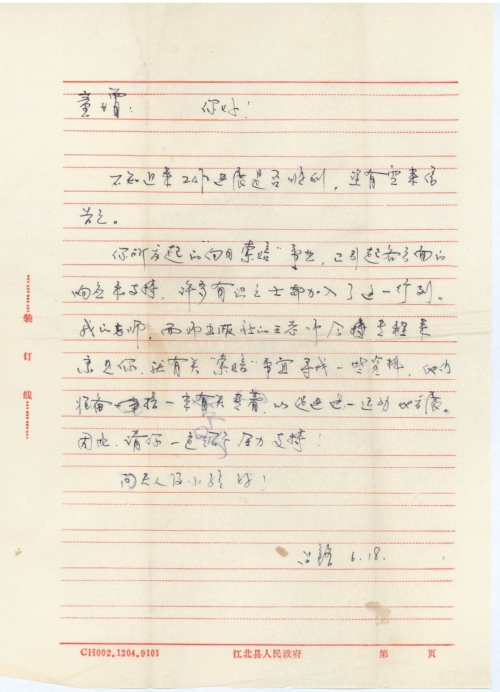 童增： 你好！
不知近来工作进展是否顺利，望有空来信
告之。
你所发起的向日“索赔”事业，已引起各方面的
响应和支持，许多有识之士都加入了这一行列。
我的老师，西师出版社的王老师今特专程来
京见你，就有关“索赔”事宜寻找一些资料，他为
准备一本有关专著，以促进这一运动的发展。
因此，请你一定给予全力支持！
问夫人及小孩好！
6.18.
装订线
CH002.1204.9101 江北县人民政府 第 页